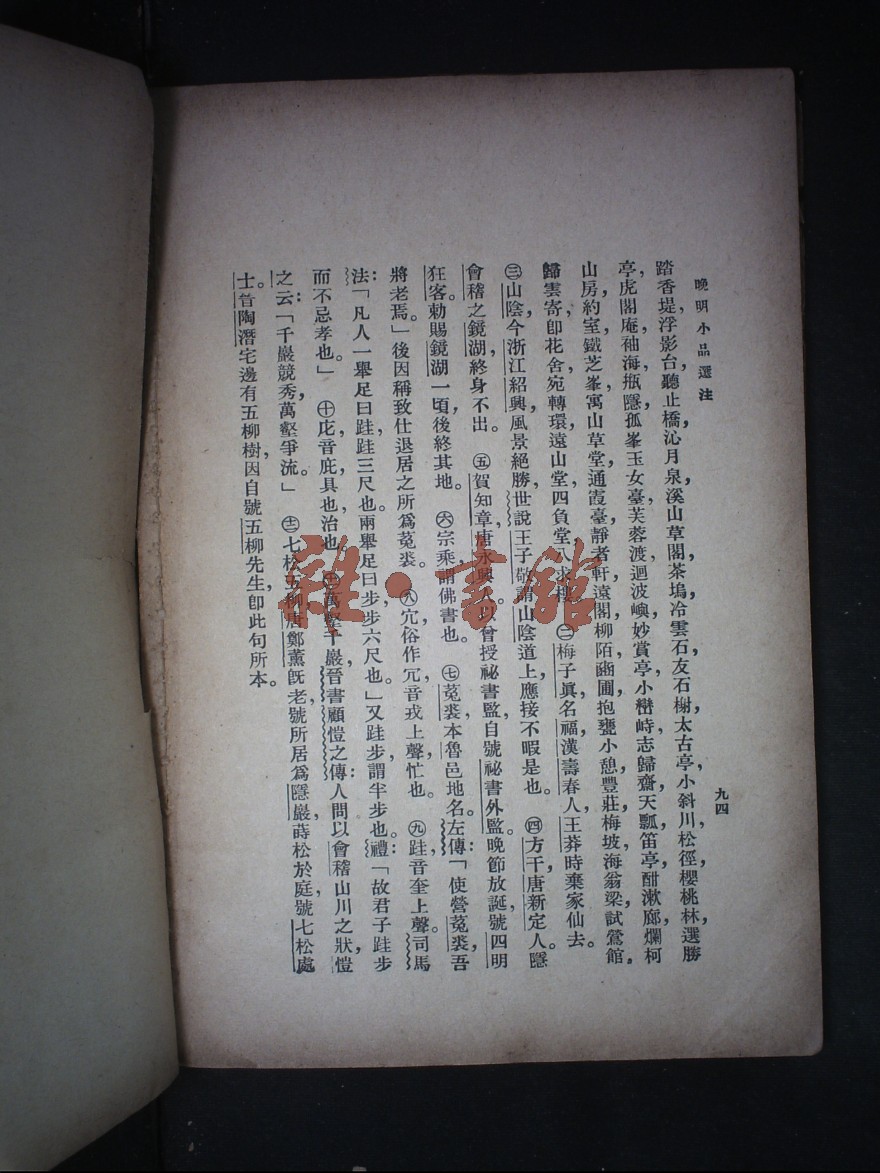 晚明小品選注
九四
踏香堤，浮影台，聽止橋，沁月泉，溪山草閣，茶塢，冷雲石，友石榭，太古亭，小斜川，松徑，櫻桃林，選勝
亭，虎閣庵，袖海，瓶隱，孤峯玉女臺，芙蓉渡，迴波嶼，妙賞亭，小巒峙，志歸齋，天瓢，笛亭，酣漱廊，爛柯
山房，約室，鐵芝峯，寓山草堂，通霞臺，靜者軒，遠閣，柳陌，豳圃，抱甕小憩，豐莊，梅坡，海翁梁，試鶯館，
歸雲寄，卽花舍，宛轉環，遠山堂，四負堂，八求樓。 ㊁梅子眞名福，漢壽春人，王莽時棄家仙去。
㊂山陰，今浙江紹興，風景絕勝，世說王子敬謂山陰道上，應接不暇是也。 ㊃方干，唐新定人。隱
會稽之鏡湖，終身不出。 ㊄賀知章，唐永興人。以曾授祕書監，自號祕書外監。晚節放誕，號四明
狂客。勅賜鏡湖一頃，後終其地。 ㊅宗乘，謂佛書也。 ㊆菟裘，本魯邑地名。左傳：「使營菟裘，吾
將老焉。」後因稱致仕退居之所爲菟裘。 ㊇宂俗作冗，音戎上聲，忙也。 ㊈跬音奎上聲。司馬
法：「凡人一舉足曰跬，跬三尺也。兩舉足曰步，步六尺也。」又跬步謂半步也。禮：「故君子跬步
而不忌孝也。」 ㊉庀音庇，具也，治也。 萬壑千巖，晉書顧愷之傳：人問以會稽山川之狀，愷
之云：「千巖競秀，萬壑爭流。」 七松五柳，唐鄭薰旣老，號所居爲隱巖，蒔松於庭，號七松處
士。晉陶潛宅邊有五柳樹，因自號五柳先生，卽此句所本。
雜·書館